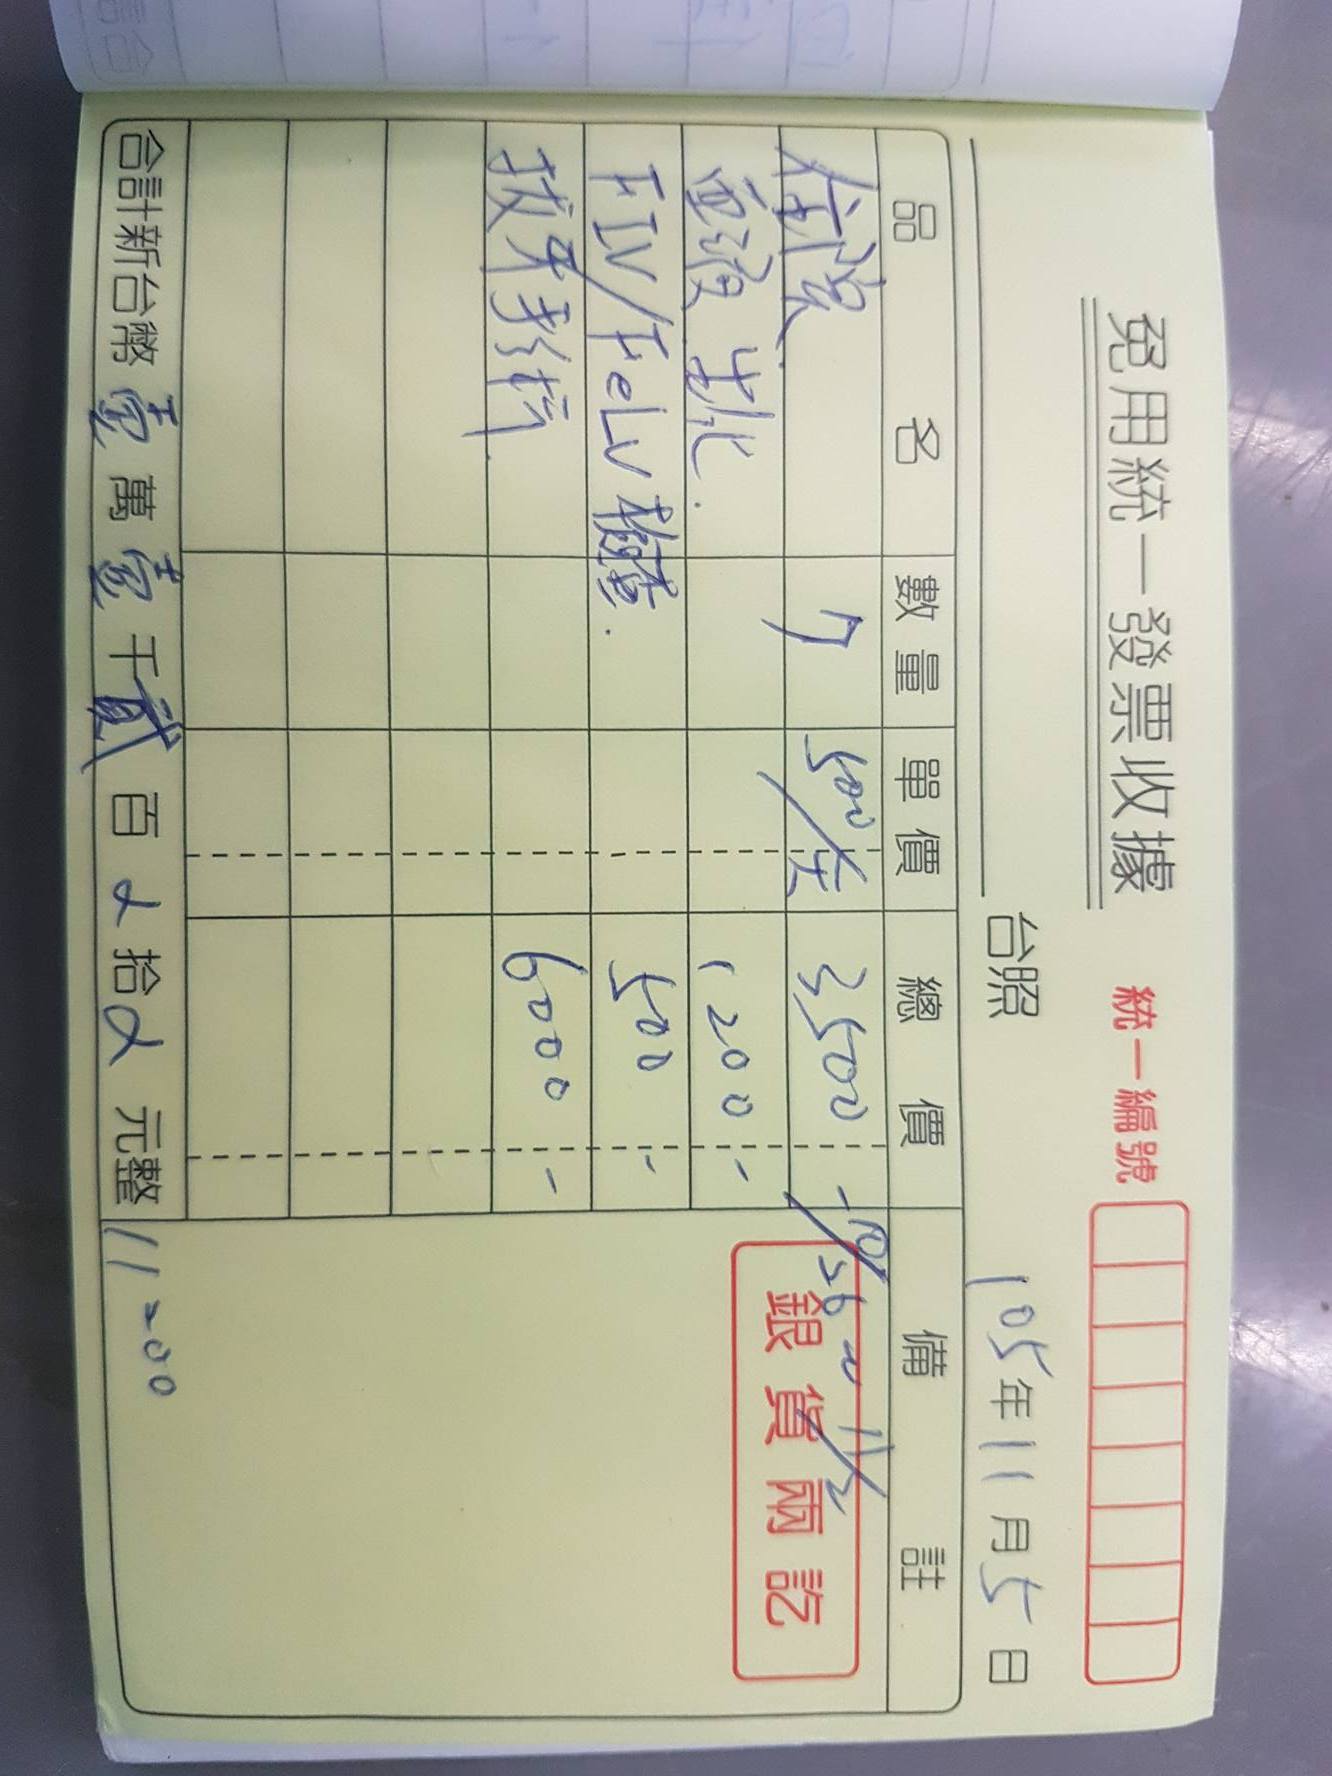 免用統一發票收據 統一編號
台照 105年11月5日
品名 數量 單價 總價 備註
住院 7 500/天 3500 - 10/26~11/2
血液生化. 1200 -
FIV/FeLV 檢查. 500 -
拔牙手術 6000 -
銀貨兩訖
合計新台幣 壹萬壹千貳百 拾 元整 11200